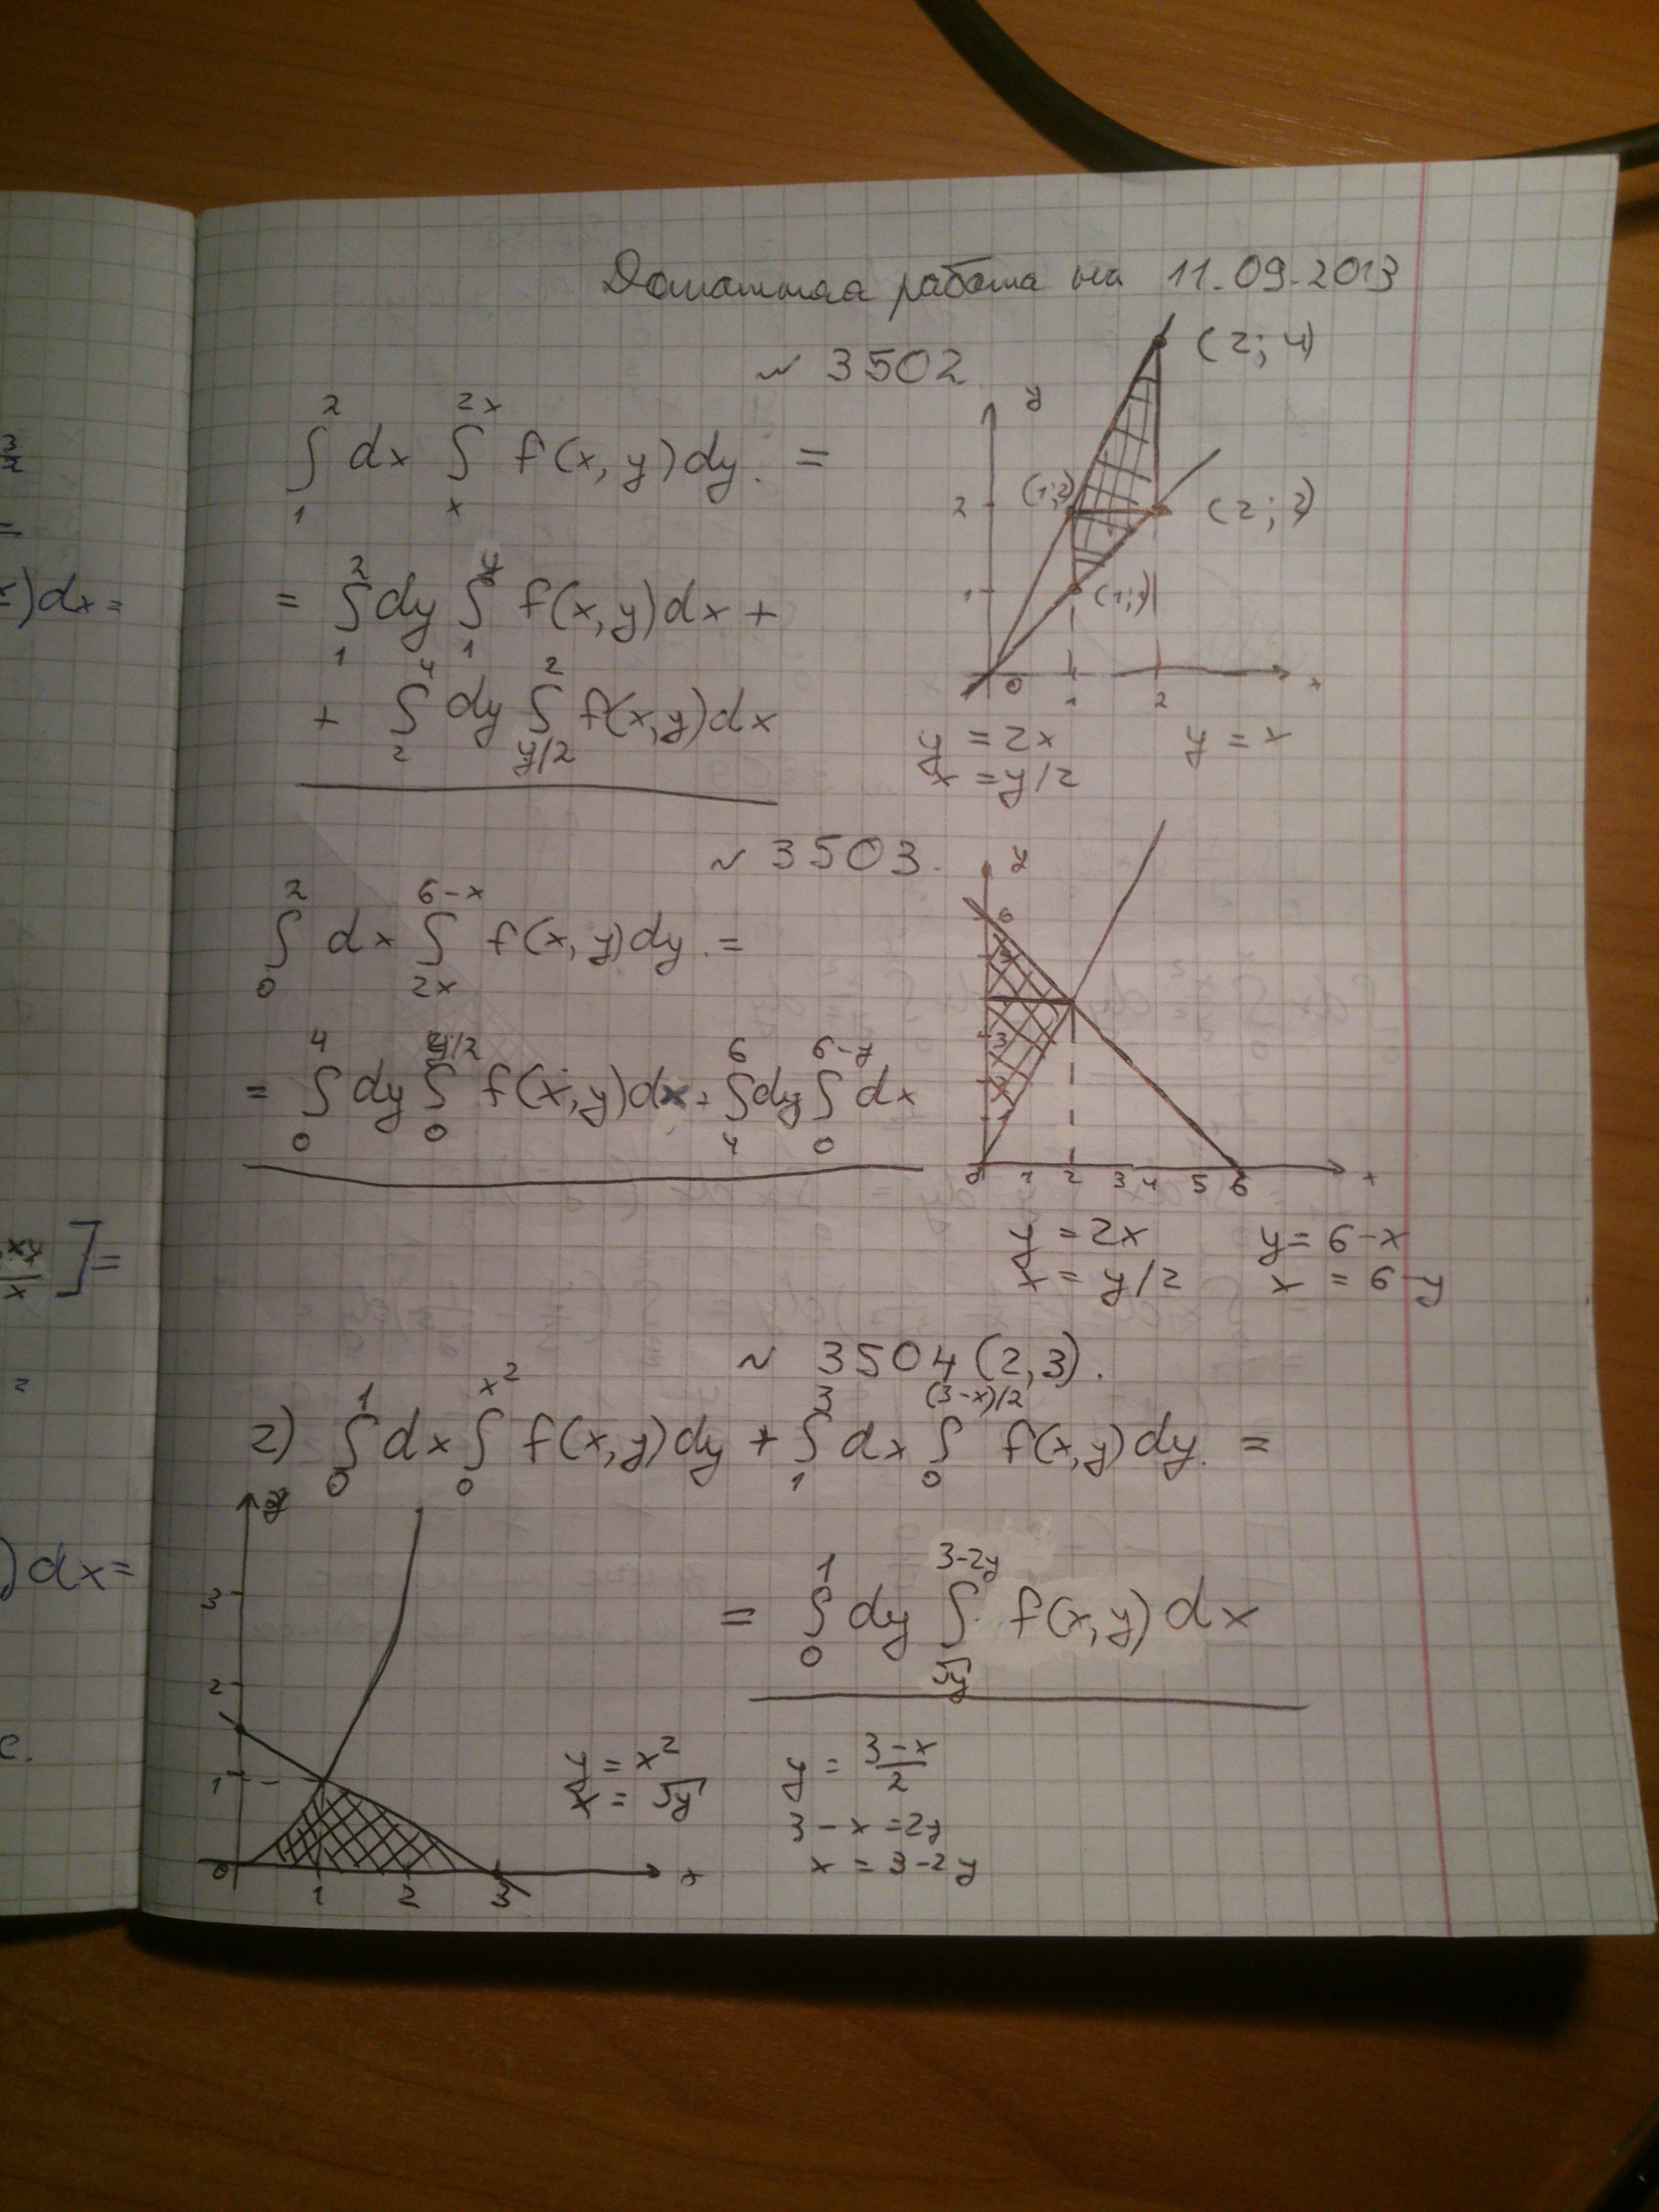 Домашняя работа на 11.09.2013
~ 3502
∫₁² dx ∫ₓ²ˣ f(x,y)dy. =
= ∫₁² dy ∫₁ʸ f(x,y)dx +
+ ∫₂⁴ dy ∫_{y/2}^{2} f(x,y)dx
y
(2; 4)
2
(1;2)
(2; 2)
1
(1;1)
0 1 2 x
y = 2x y = x
x = y/2
~ 3503.
∫₀² dx ∫_{2x}^{6-x} f(x,y)dy. =
= ∫₀⁴ dy ∫_{0}^{y/2} f(x,y)dx + ∫₄⁶ dy ∫_{0}^{6-y} dx
y
6
5
3
2
1
0 1 2 3 4 5 6 x
y = 2x y = 6-x
x = y/2 x = 6-y
~ 3504(2,3).
2) ∫₀¹ dx ∫_{0}^{x²} f(x,y)dy + ∫₁³ dx ∫_{0}^{(3-x)/2} f(x,y)dy. =
= ∫₀¹ dy ∫_{√y}^{3-2y} f(x,y)dx
y
3
2
1
0 1 2 3 x
y = x² y = (3-x)/2
x = √y 3-x=2y
x = 3-2y
3/2
=
)dx =
]=
)dx=
с.